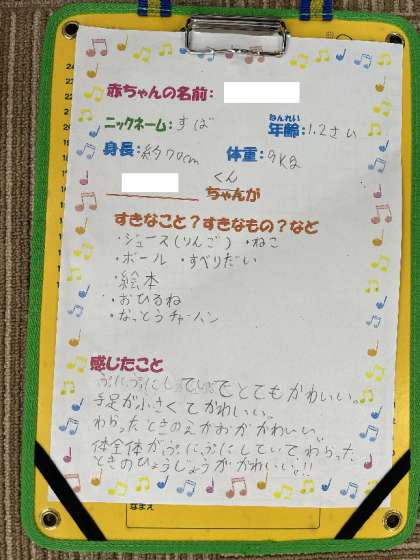 赤ちゃんの名前:
ニックネーム:すば
年齢:1.2さい
ねんれい
身長:約70cm 体重:9kg
くん
ちゃんが
すきなこと?すきなもの?など
・ジュース(りんご) ・ねこ
・ボール ・すべりだい
・絵本
・おひるね
・なっとうチャーハン
感じたこと
ぷにぷにしていてとてもかわいい。
手足が小さくてかわいい。
わらったときのえがおがかわいい。
体全体がぷにぷにしていてわらった
ときのひょうしょうがかわいい!!
なまえ